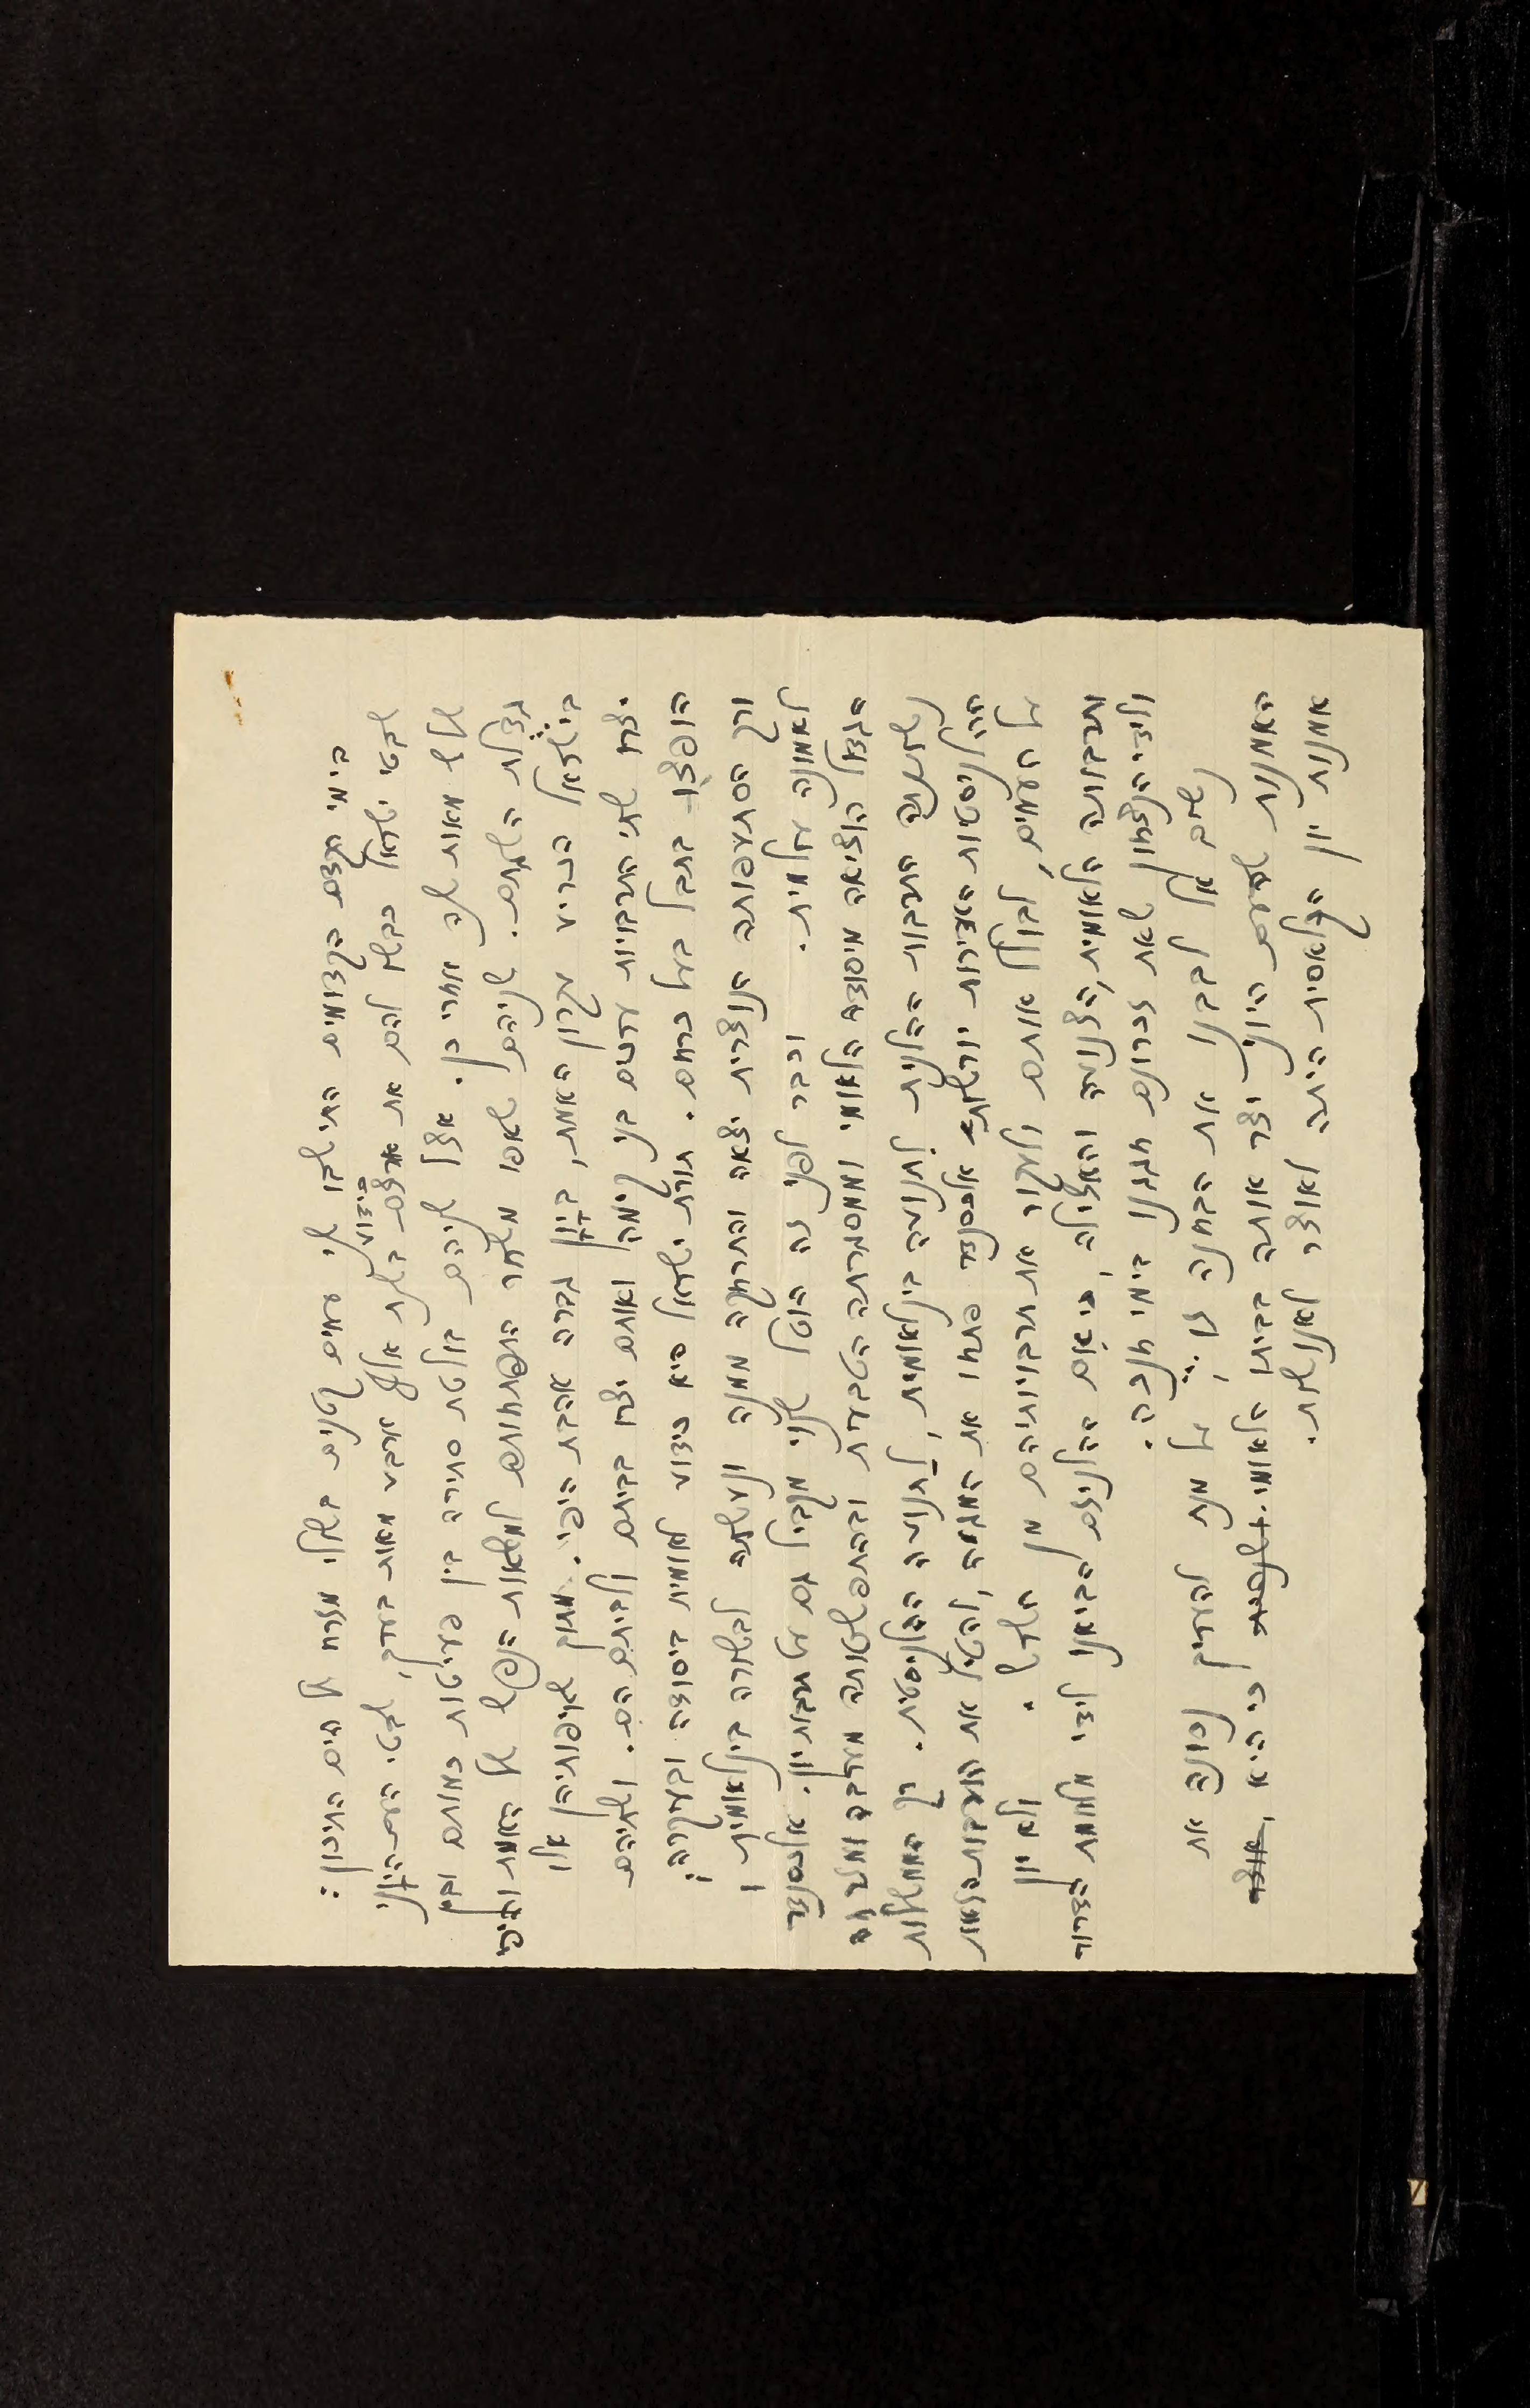 בימי קדם הקדומים התישבו שני עמים קטנים בשולי מזרח של הים התיכון:
שבטי ישראל בבקשם להם את ארצם כידוע בשנת אלף וארבע מאות בערך, שבטי העם-היוני
שלש מאות שנה אחרי כן. אצל שניהם בולטת סתירה בין פעוטות כמותם ובין
גדולת השגתם. שניהם שאפו משחר התפתחותם למשאות הנפש של האמת והיפה
בישראל הכריע עקרון האמת, ביון גברה אהבת היפי. מתוך שאיפותיהן אלו
יצרו שתי תרבויות עדשים בני קימה ואותם יצרו בביתם ולביתם הם. ושתיהם
הופצו בתבל בעל כרחם. תורת ישראל היא כידוע לאומית ביסודה ובעיקרה;
ורק הסתעפותה הנוצרית יצאה והתרחקה ממנה ונעשתה לבשורה בינלאומית;
לאמונה עולמית. וכבר לפני זה הוטל שנוי מקביל גם על תרבות יון. אלכסנדר
הגדול הוציאה מיסודה הלאומי וממסגרתה הטבעית ובהתפשטותה מערבה ומזרחה
נשתנתה התרבות ההלנית לתנועה בינלאומית, לתנועה ההלניסטית. כך הממשלות
ההלניסטיות האדירות יורשות אלכסנדר פתחו את המגמה, להטיל את תרבות-הלאות
על העמים, לבולל אותם ולעקור את תרבויותיהם מן השרש. ולא יון
ותרבותה הלאומית, הצנועה והאצילה, כי אם ההלניזם הביאנו לידי מלחמת הדורות
ולידי הנצחון שאת זכרונם חגגנו בימי חנכה.
נשים אל לבנו את הבחנה זו, על מנת להעריך נכונה את
האמנות שהעם היוני יצר אותה בביתו הלאומי. כי היא
אמנות יון הקלאסית היתה לאוצר לאנושות.